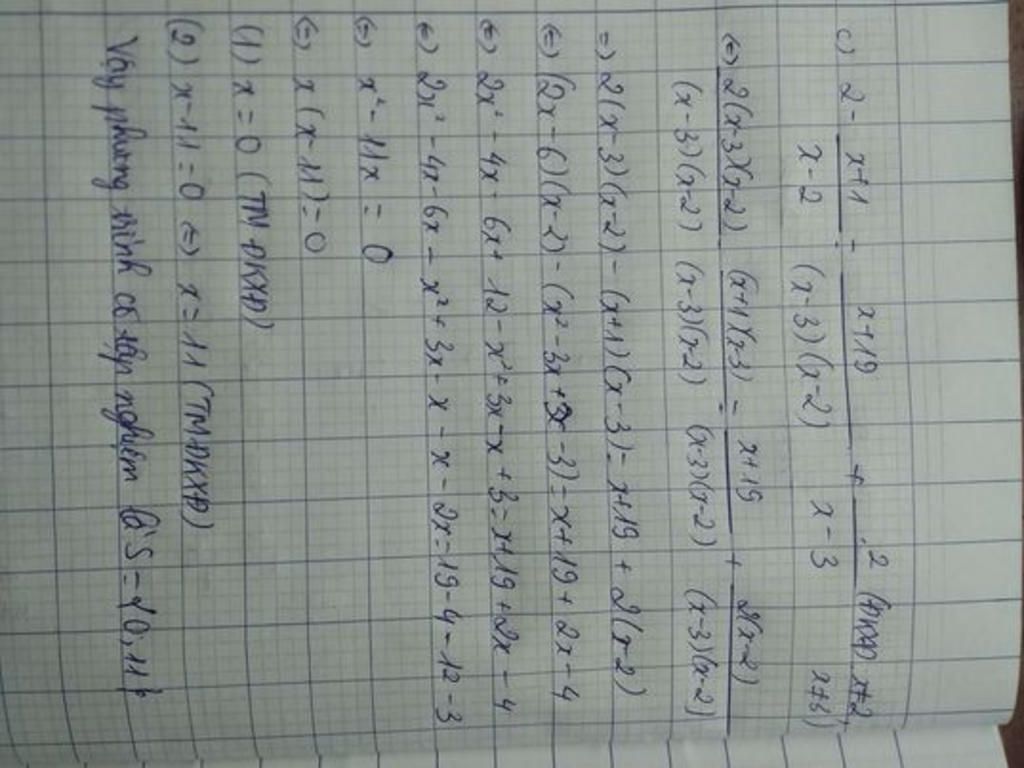 c) 2 - \frac{x+1}{x-2} = \frac{x+19}{(x-3)(x-2)} + \frac{2}{x-3} (ĐKXĐ x≠2, x≠3)
⇔ \frac{2(x-3)(x-2)}{(x-3)(x-2)} - \frac{(x+1)(x-3)}{(x-3)(x-2)} = \frac{x+19}{(x-3)(x-2)} + \frac{2(x-2)}{(x-3)(x-2)}
⇒ 2(x-3)(x-2) - (x+1)(x-3) = x+19 + 2(x-2)
⇔ (2x-6)(x-2) - (x² - 3x + x - 3) = x+19 + 2x - 4
⇔ 2x² - 4x - 6x + 12 - x² + 3x - x + 3 = x+19 + 2x - 4
⇔ 2x² - 4x - 6x - x² + 3x - x - x - 2x = 19 - 4 - 12 - 3
⇔ x² - 11x = 0
⇔ x(x-11) = 0
(1) x = 0 (TM ĐKXĐ)
(2) x - 11 = 0 ⇔ x = 11 (TM ĐKXĐ)
Vậy phương trình có tập nghiệm là S = {0; 11}